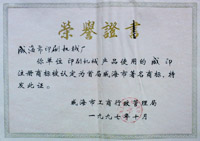 榮譽證書
威海市印刷机械厂
你单位印刷机械产品使用的 威印
注册商标被认定为首届威海市著名商标，特
发此证。
威海市工商行政管理局
一九九七年十月